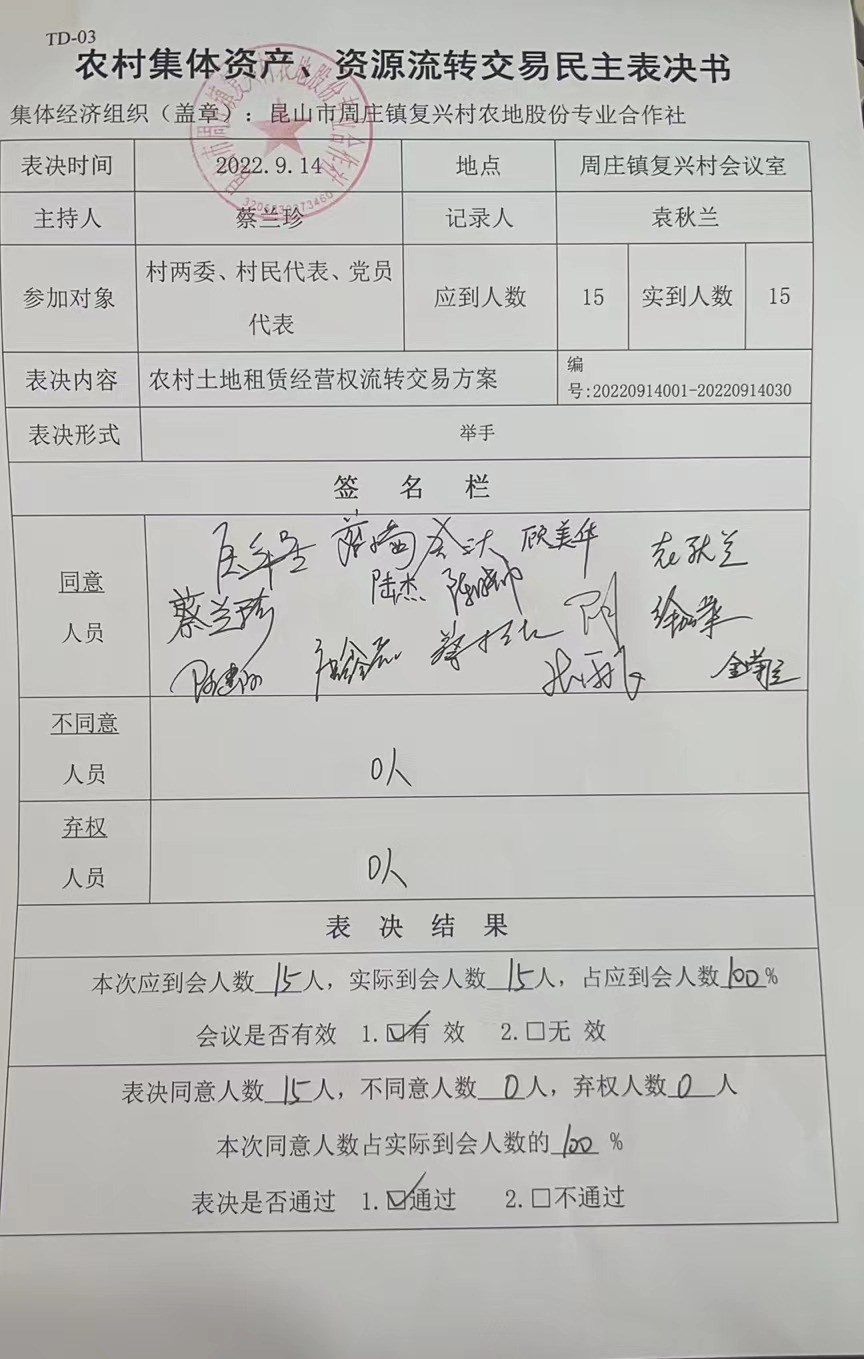 TD-03
农村集体资产、资源流转交易民主表决书
集体经济组织（盖章）：昆山市周庄镇复兴村农地股份专业合作社
表决时间 2022.9.14 地点 周庄镇复兴村会议室
主持人 蔡兰珍 记录人 袁秋兰
参加对象 村两委、村民代表、党员代表 应到人数 15 实到人数 15
表决内容 农村土地租赁经营权流转交易方案 编号:20220914001-20220914030
表决形式 举手
签 名 栏
同意
人员
顾美华 袁秋兰
陆杰
蔡兰珍
不同意
人员
0人
弃权
人员
0人
表 决 结 果
本次应到会人数 15 人，实际到会人数 15 人，占应到会人数 100 %
会议是否有效 1.☑有 效 2.□无 效
表决同意人数 15 人，不同意人数 0 人，弃权人数 0 人
本次同意人数占实际到会人数的 100 %
表决是否通过 1.☑通过 2.□不通过